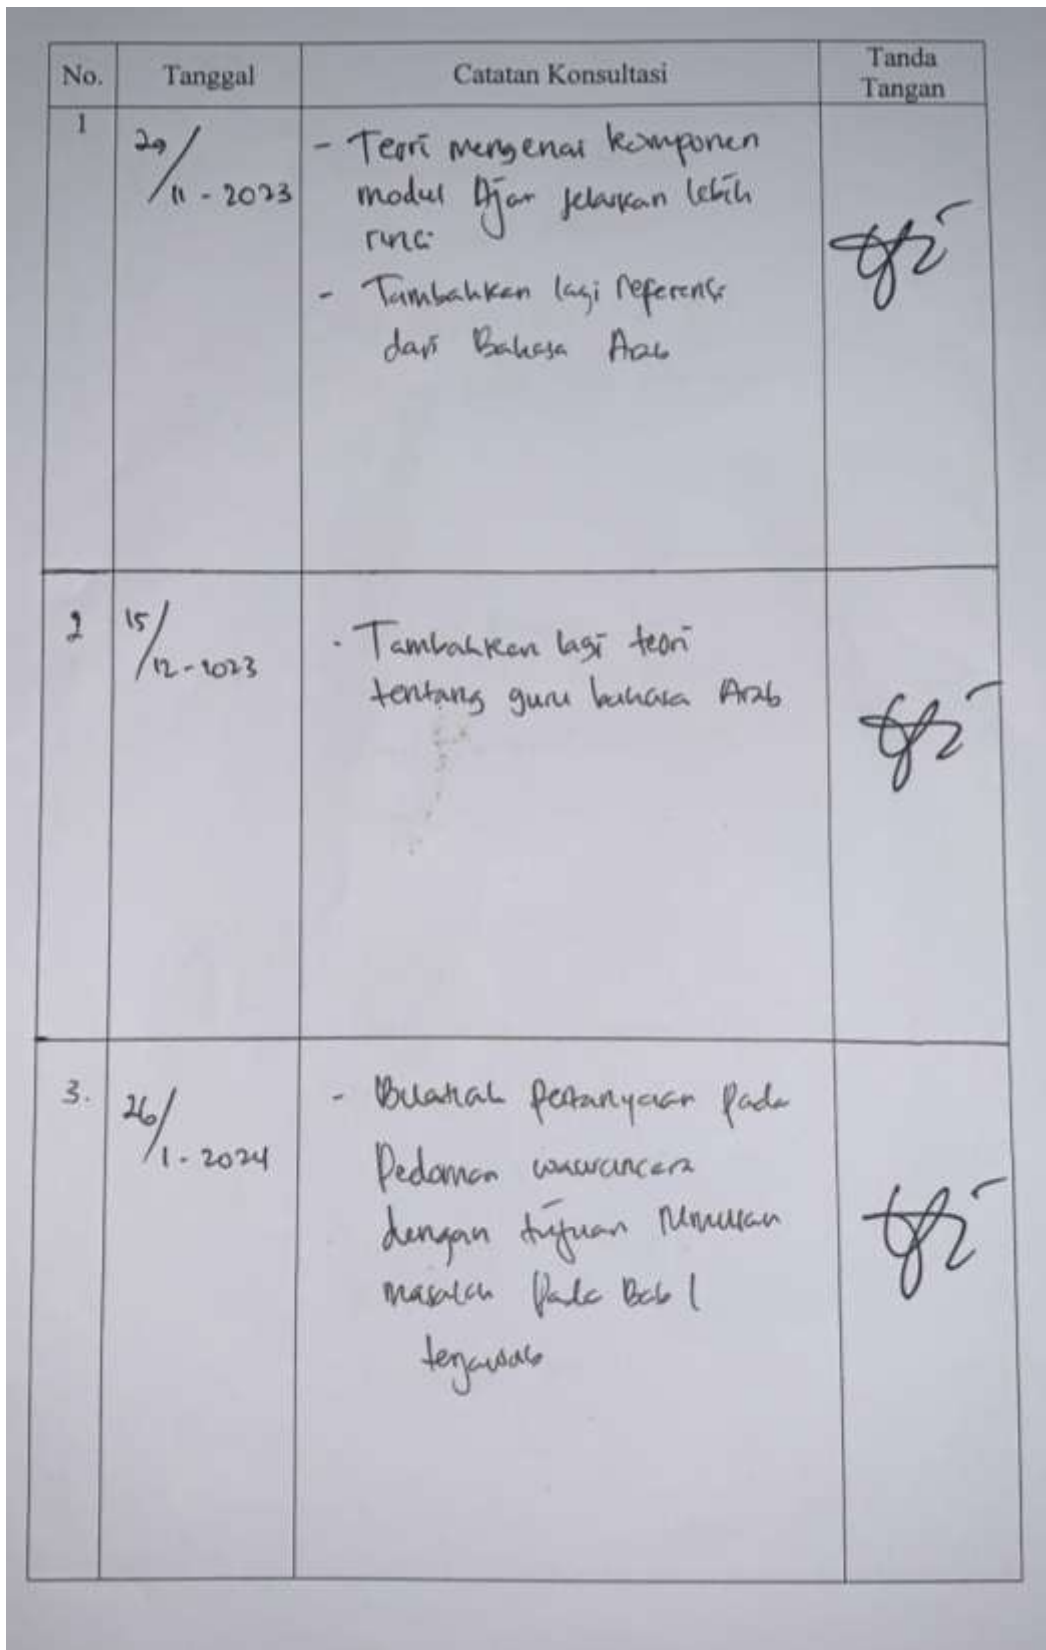 No. Tanggal Catatan Konsultasi Tanda
Tangan
1
29/11-2023
- Teori mengenai komponen
modul Ajar jelaskan lebih
rinci
- Tambahkan lagi referensi
dari Bahasa Arab
2
15/12-2023
- Tambahkan lagi teori
tentang guru bahasa Arab
3.
26/1-2024
- Buatlah pertanyaan pada
Pedoman wawancara
dengan tujuan rumusan
masalah pada Bab 1
terjawab